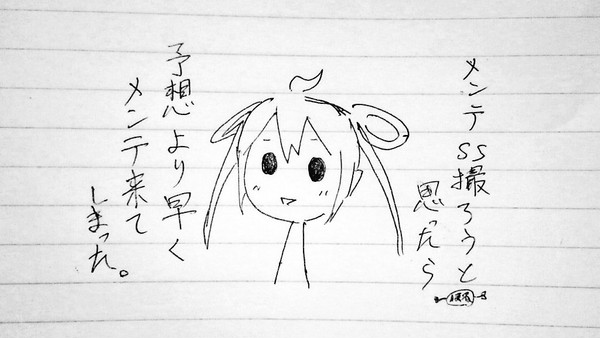 メンテSS撮ろうと
思ったら
予想より早く
メンテ来て
しまった。